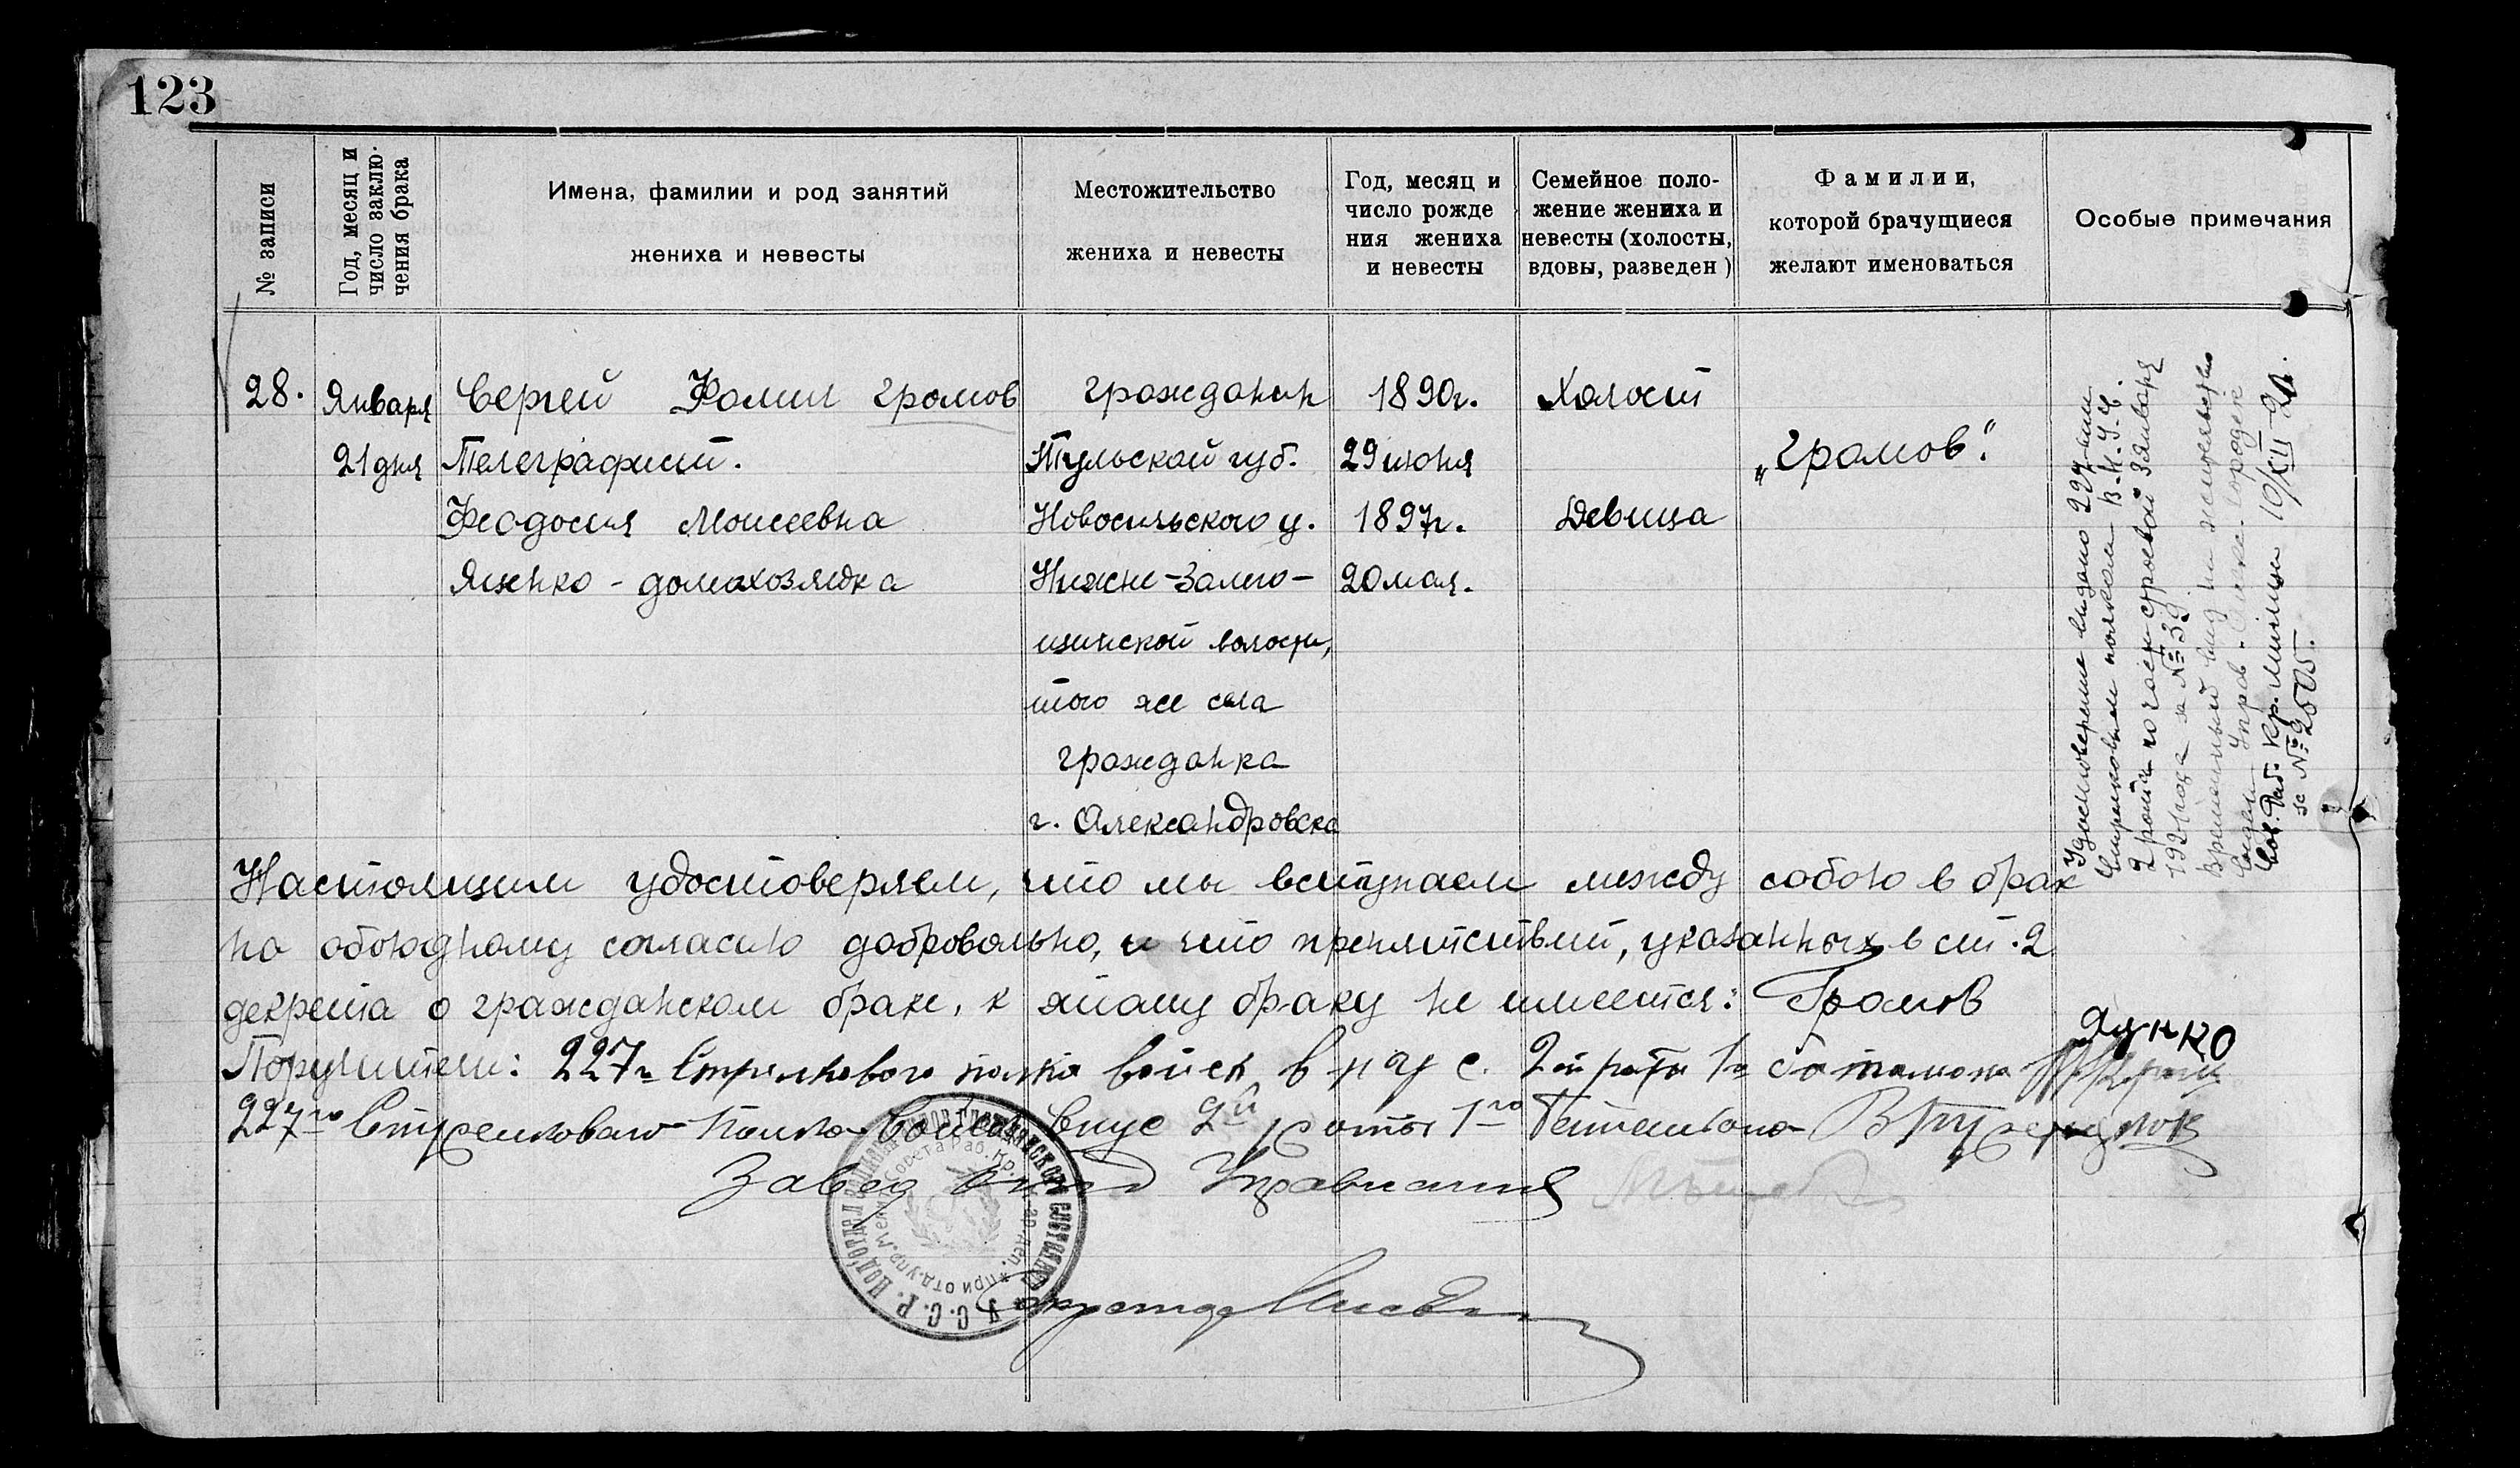 123
№ записи
Год, месяц и
число заклю-
чения брака
Имена, фамилии и род занятий
жениха и невесты
Местожительство
жениха и невесты
Год, месяц и
число рожде
ния жениха
и невесты
Семейное поло-
жение жениха и
невесты (холосты,
вдовы, разведен )
Фамилии,
которой брачущиеся
желают именоваться
Особые примечания
28.
Января
21 дня
Сергей Фомич Громов
Телеграфист.
Феодосия Моисеевна
Яценко - домохозяйка
гражданин
Тульской губ.
Новосильского у.
Нижне-Залего-
щинской волости,
того же села
гражданка
г. Александровска
1890г.
29 июня
1897г.
20 мая.
Холост
Девица
„Громов".
Удостоверение выдано 227-ым
Стрелковым полком В.Н.У.С.
2 ротой по части строевой 3 января
1921 года за № 39
Временный вид на жительство
Раб. Кр. Милиции 10/XII 20.
за № 2505.
Настоящим удостоверяем, что мы вступаем между собою в брак
по обоюдному согласию добровольно, и что препятствий, указанных в ст. 2
декрета о гражданском браке, к этому браку не имеется: Громов
Яценко
Поручители: 227го Стрелкового полка войск внус. 2ой роты 1го батальона
227го Стрелкового Полка Войск Внус 2й роты 1го Батальона
Завед Отд Управления
У.С.С.Р. Подотдел записей актов гражданского состояния
при отд. упр. Мел. Совета Раб. Кр. деп.